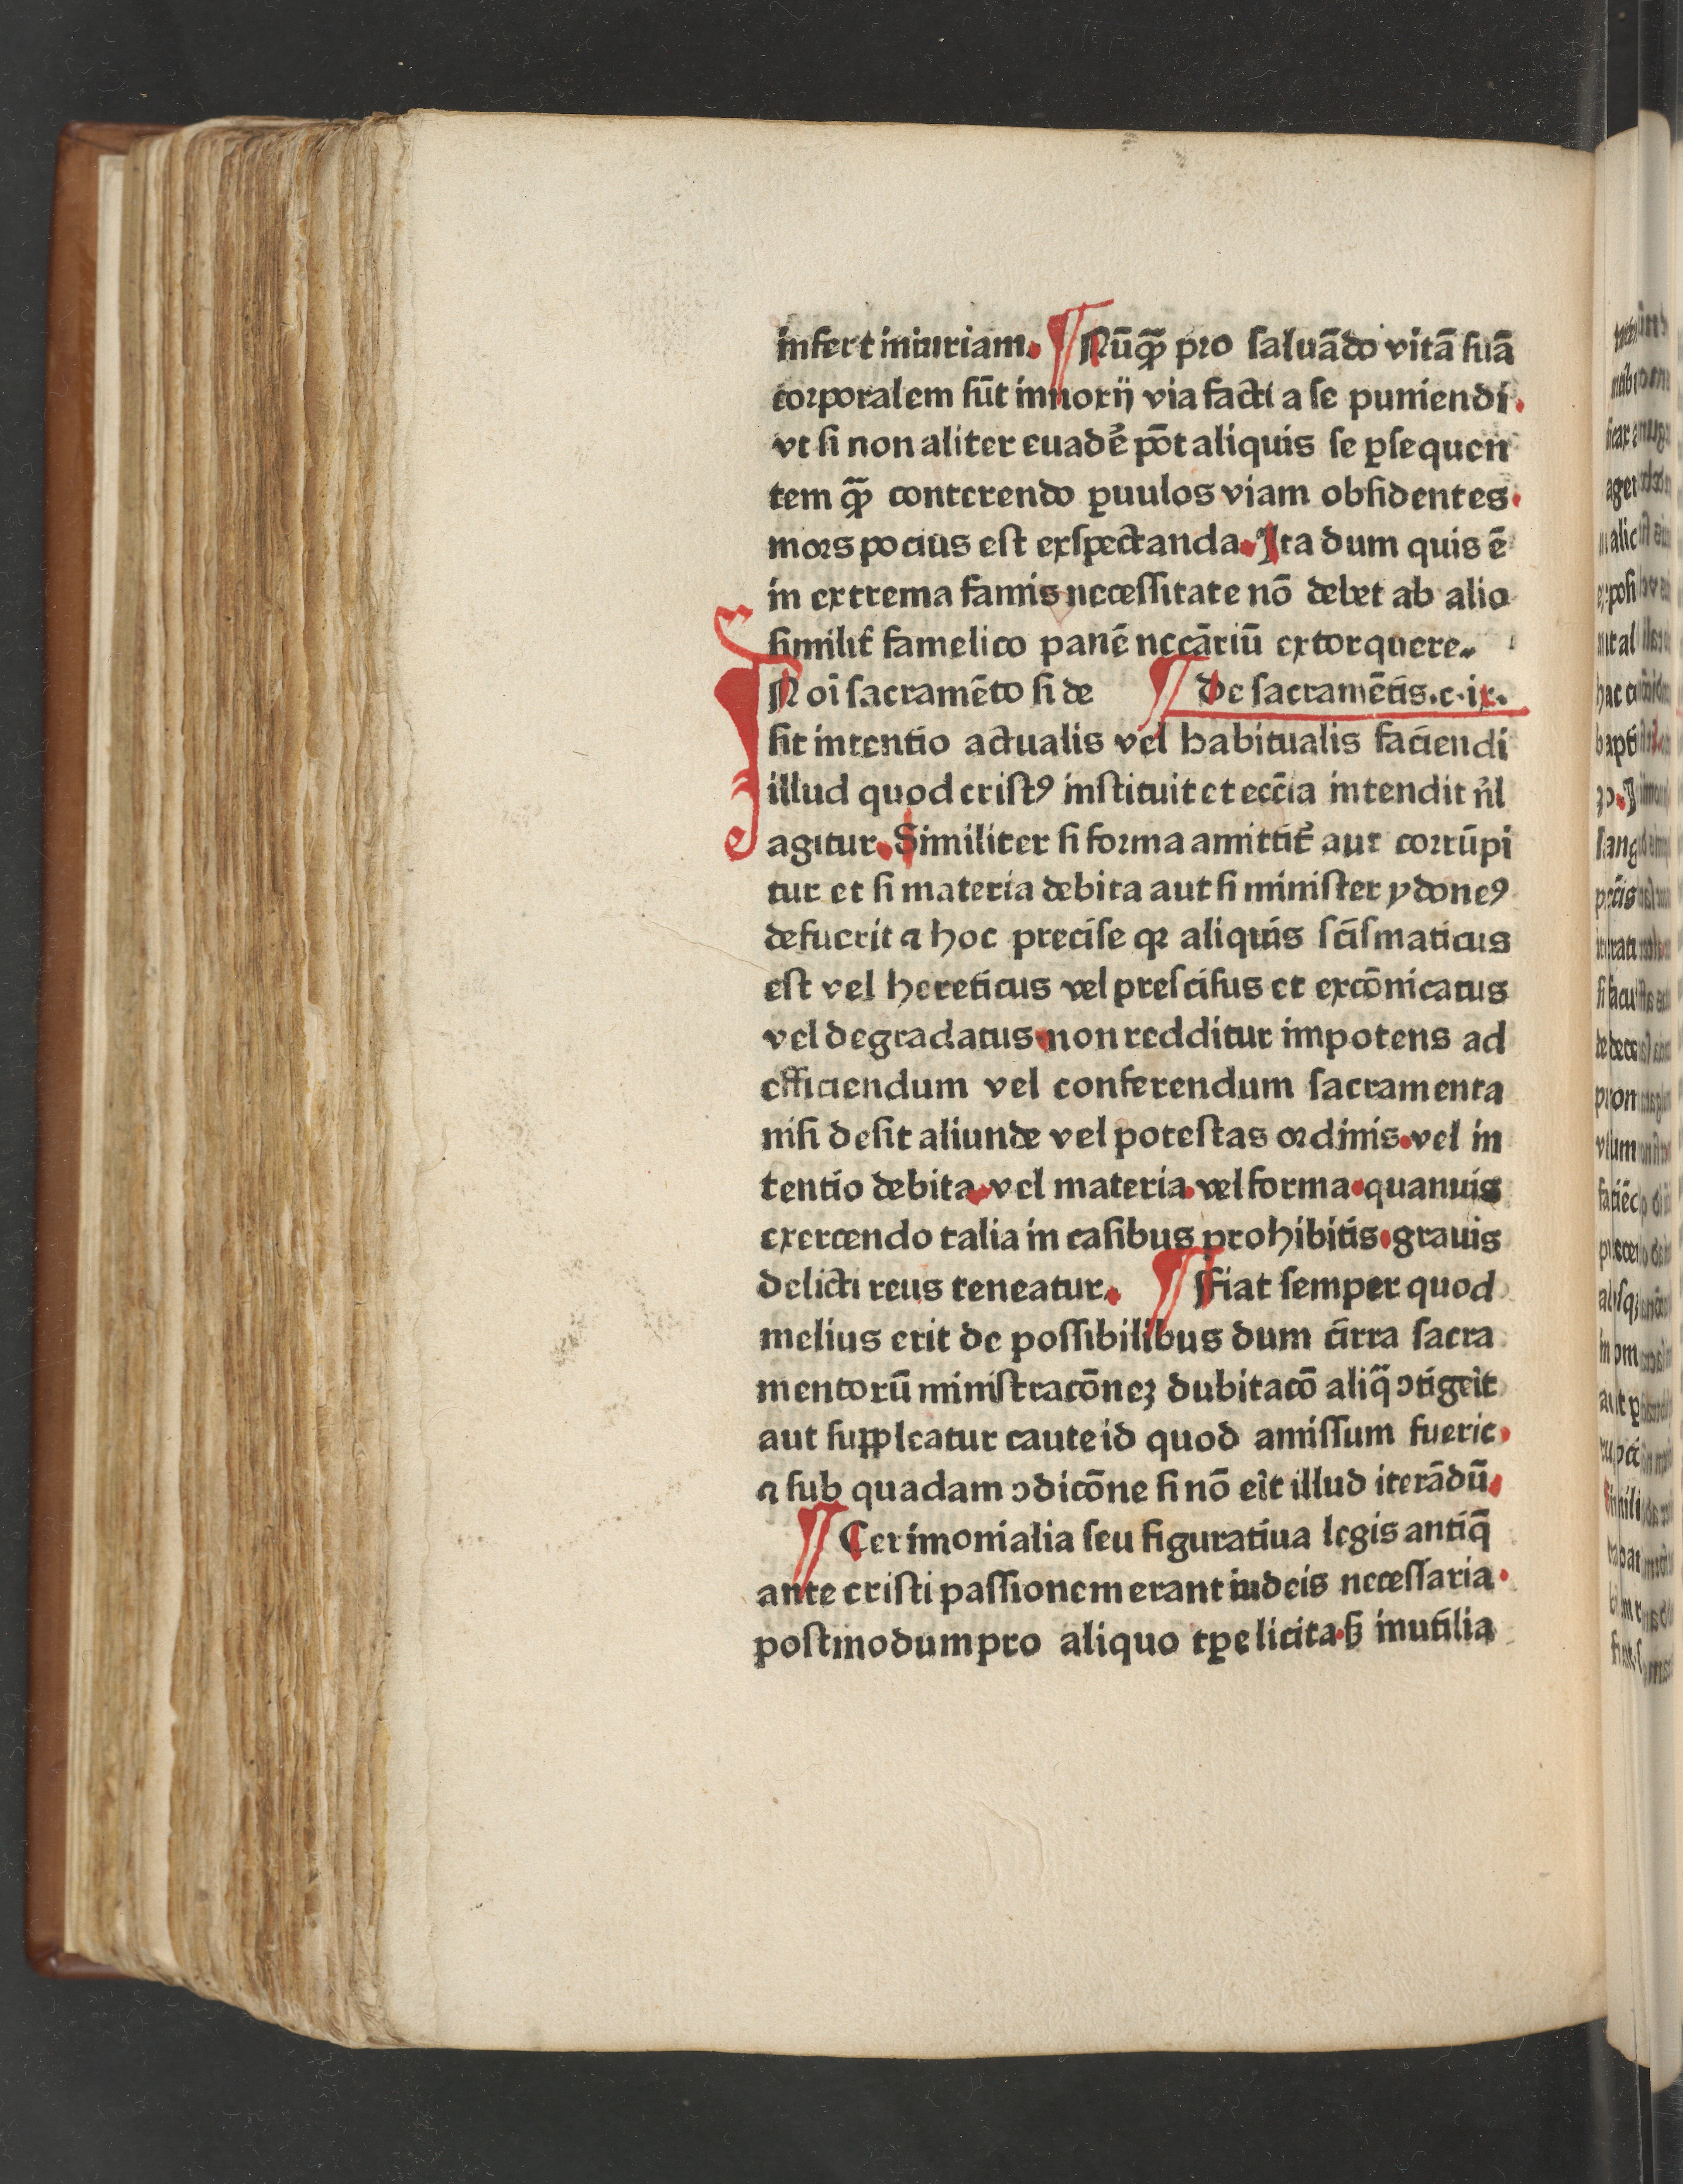 infert iniuriam. ¶ Nūqꝫ̄ pro ſaluādo vitā ſuā
corporalem ſūt innoxij via facti a ſe puniendi.
vt ſi non aliter euadē pōt aliquis ſe ꝑſequen
tem qꝫ̄ conterendo ꝑuulos viam obſidentes.
mors pocius eſt exſpectanda. Ita dum quis ē
in extrema famis neceſſitate nō debet ab alio
ſimilit̉ famelico panē neċāriū extorquere.
IN oī ſacramēto ſi de ¶ De ſacramētis.c.ix.
ſit intentio actualis vel habitualis faciendi
illud quod criſtꝰ inſtituit et ecc̄ia intendit n̄l
agitur. Similiter ſi forma amittit̉ aut corrūpi
tur et ſi materia debita aut ſi miniſter ydoneꝰ
defuerit ⁊ hoc preciſe qꝛ aliquis ſciſmaticus
eſt vel hereticus vel preſciſus et excōnicatus
vel degradatus.non redditur impotens ad
efficiendum vel conferendum ſacramenta
niſi deſit aliunde vel poteſtas ordinis.vel in
tentio debita.vel materia.vel forma.quanuis
exercendo talia in caſibus prohibitis.grauis
delicti reus teneatur. ¶ Fiat ſemper quod
melius erit de poſſibilibus dum cirra ſacra
mentorū miniſtracōnez dubitacō aliq̄ ↄtigeīt
aut ſuppleatur caute id quod amiſſum fuerit.
⁊ ſub quadam ↄdicōne ſi nō eīt illud iterādū.
¶ Cerimonialia ſeu figuratiua legis antiq̄
ante criſti paſſionem erant iudeis neceſſaria.
poſtmodum pro aliquo tꝑe licita.ſꝫ inutilia